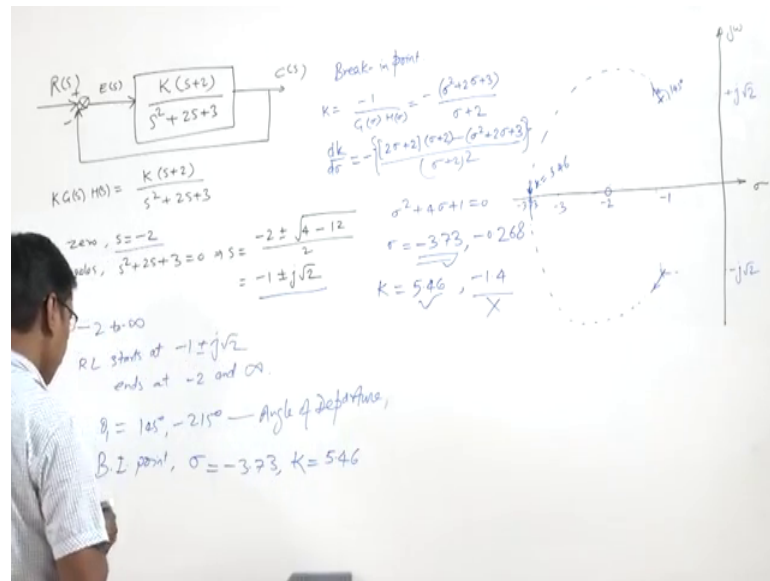 R(s) + - E(s) K(s+2) / s²+2s+3 C(s)
KG(s) H(s) = K(s+2) / s²+2s+3
zero, s=-2
s²+2s+3=0 ⇒ s = -2 ± √4-12 / 2
= -1 ± j√2
-2 to ∞
RL starts at -1 ± j√2
ends at -2 and ∞.
= 145°, -215° — Angle of Departure,
B.I. point, σ = -3.73, K = 5.46
Break-in point
K = -1 / G(σ) H(σ) = - (σ²+2σ+3) / σ+2
dk/dσ = -{ [2σ+2](σ+2) - (σ²+2σ+3) / (σ+2)2 }
σ²+4σ+1=0
σ = -3.73, -0.268
K = 5.46, -1.4
X
jω
+j√2
145°
K=5.46
-3.73 -3 -2 -1 σ
-j√2